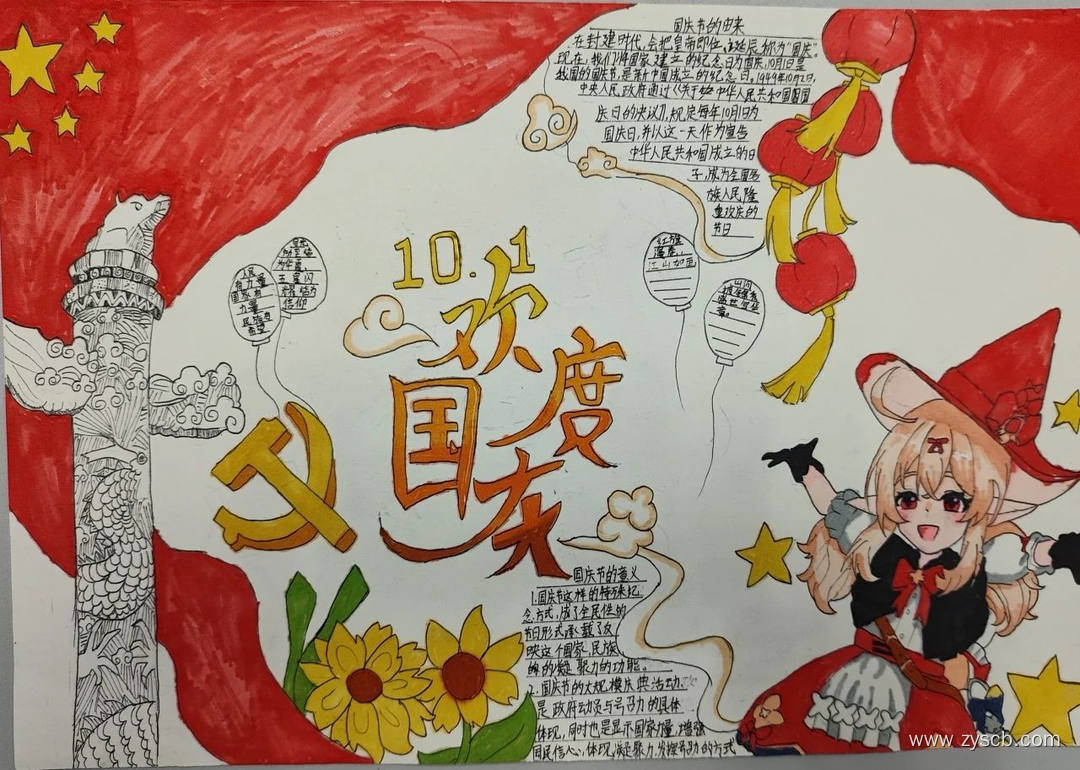 国庆节的由来
在封建时代,会把皇帝即位、诞辰称为"国庆"。
现在,我们将国家建立的纪念日为国庆,10月1日是
我国的国庆节,是新中国成立的纪念日,1949年10月2日,
中央人民政府通过《关于中华人民共和国国
庆日的决议》,规定每年10月1日为
国庆日,并以这一天作为宣告
中华人民共和国成立的日
子,成为全国各
族人民隆
重欢庆的
节日
10.1
欢
度
国
庆
人民
有力量
国家有
力量
民族有
希望
五星闪
耀皆为
信仰
红旗
江山如画
国庆节的意义
1.国庆节这样的特殊纪
念方式,成了全民性的
节日形式承载了反
映这个国家、民族
的凝聚力的功能。
2.国庆节的大规模庆典活动、
是政府动员与号召力的具体
体现,同时也是显示国家力量,增强
国民信心,体现凝聚力,发挥号召的方式
www.zyscb.com